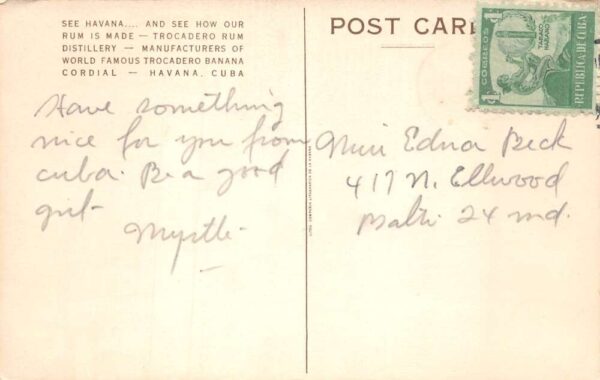 SEE HAVANA.... AND SEE HOW OUR
RUM IS MADE — TROCADERO RUM
DISTILLERY — MANUFACTURERS OF
WORLD FAMOUS TROCADERO BANANA
CORDIAL — HAVANA, CUBA
POST CAR
1
CORREOS
TABACO
HABANO
REPUBLICA DE CUBA
1
Have something
nice for you from
Cuba. Be a good
girl-
Myrtle-
Miss Edna Beck
417 N. Ellwood
Balto 24 Md.